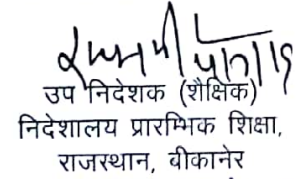 उप निदेशक (शैक्षिक)
निदेशालय प्रारम्भिक शिक्षा,
राजस्थान, बीकानेर